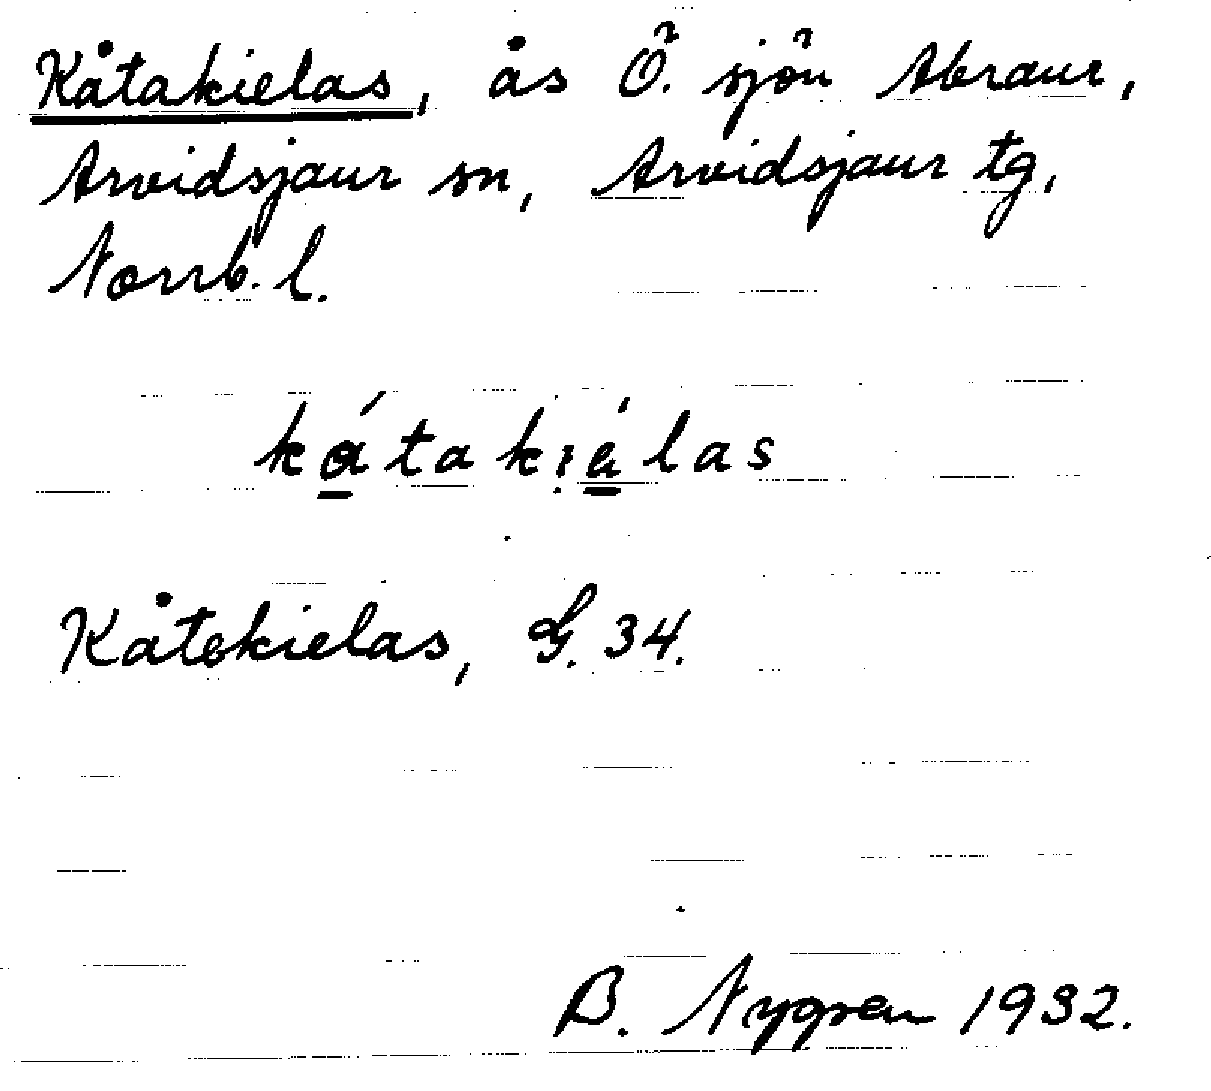 Kåtakielas, ås Ö. sjön Abraur,
Arvidsjaur sn, Arvidsjaur tg,
Norrb. l.
kátakiélas
Kåtokielas, G. 34.
B. Nygren 1932.